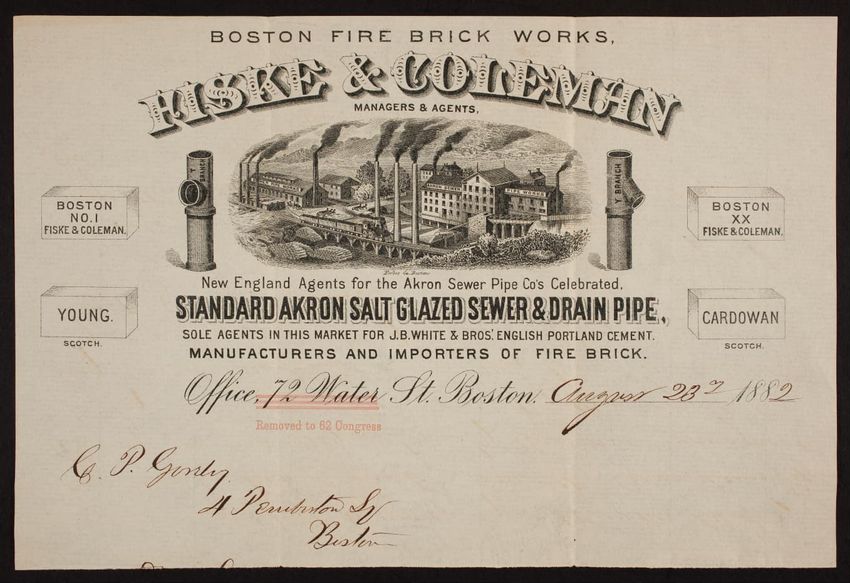 BOSTON FIRE BRICK WORKS,
FISKE & COLEMAN
MANAGERS & AGENTS,
Y BRANCH
PIPE WORKS
Y BRANCH
BOSTON
NO. 1
FISKE & COLEMAN.
BOSTON
XX
FISKE & COLEMAN.
New England Agents for the Akron Sewer Pipe Co's Celebrated.
STANDARD AKRON SALT GLAZED SEWER & DRAIN PIPE,
YOUNG.
SCOTCH.
CARDOWAN
SCOTCH.
SOLE AGENTS IN THIS MARKET FOR J.B. WHITE & BROS', ENGLISH PORTLAND CEMENT.
MANUFACTURERS AND IMPORTERS OF FIRE BRICK.
Office, 72 Water St. Boston. August 23 1882
Removed to 62 Congress
C. P.
4 Pemberton Sq
Boston